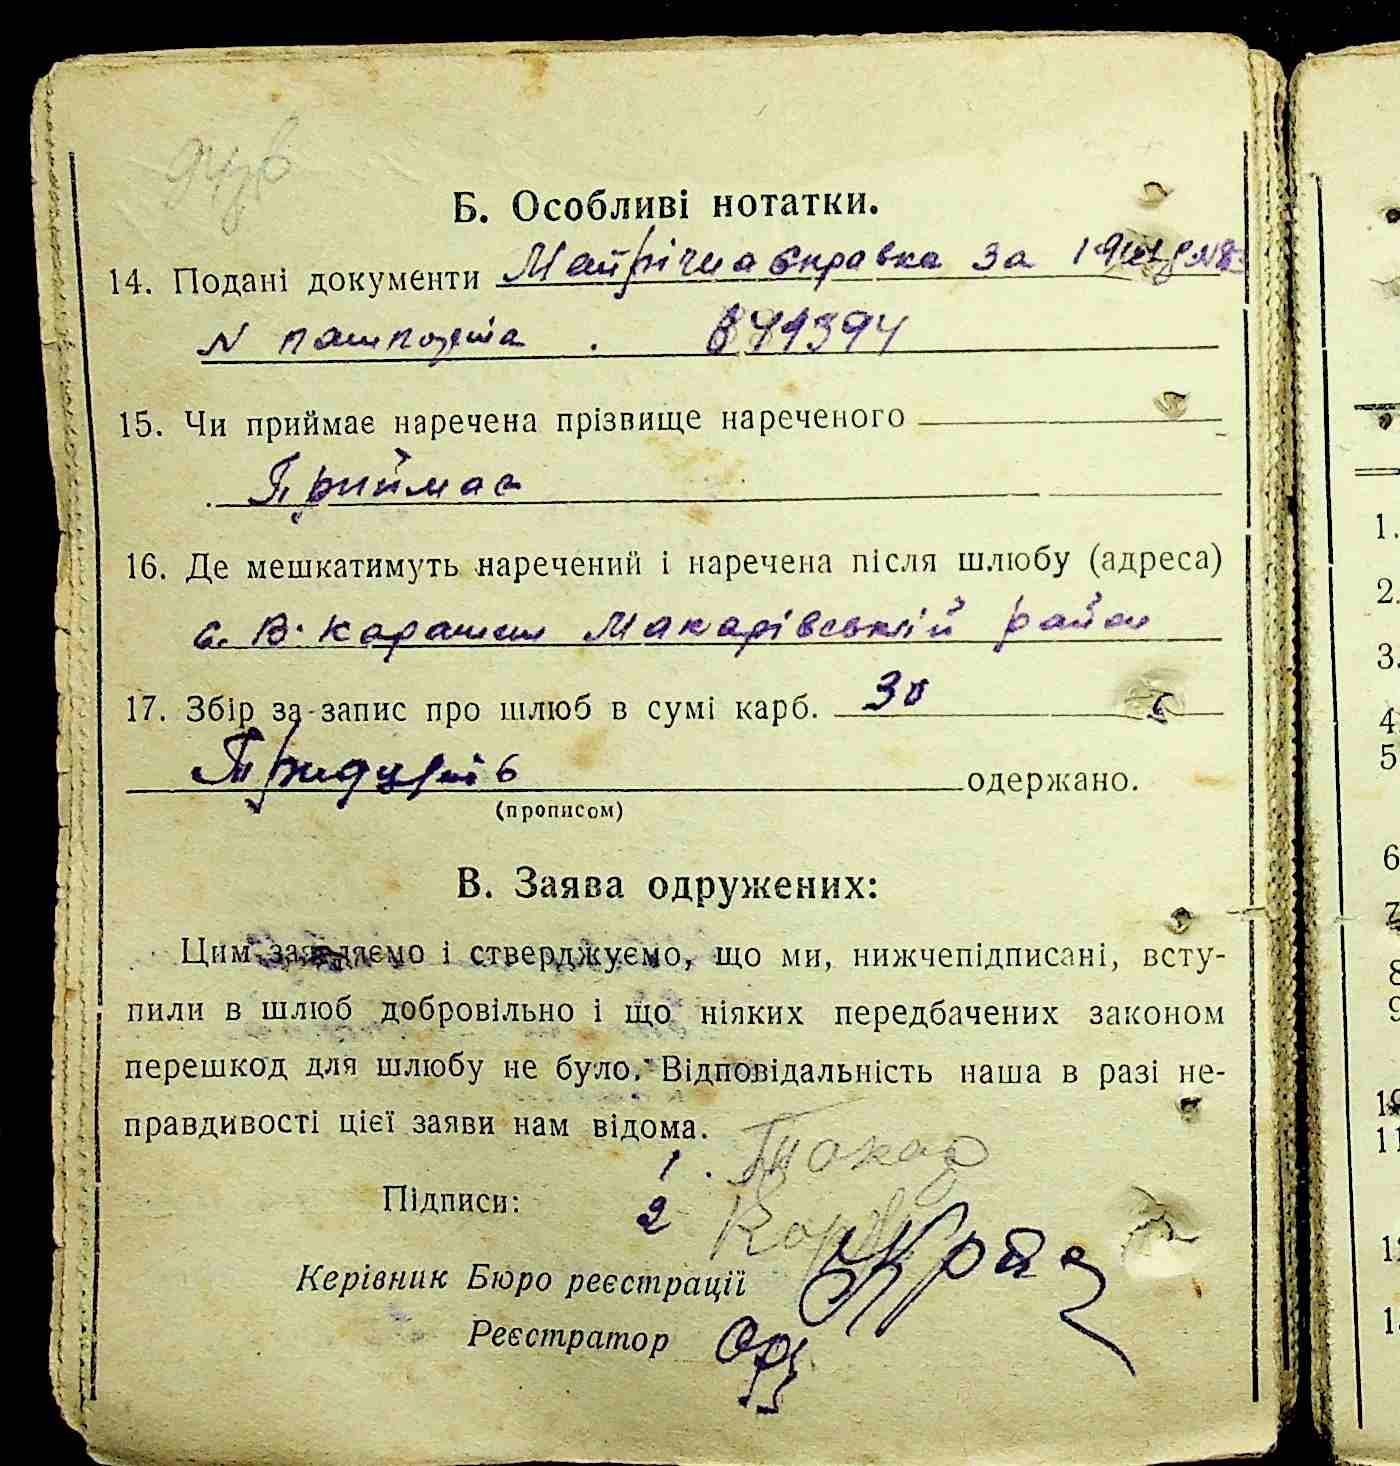 Б. Особливі нотатки.
14. Подані документи Матрічна справка за
N пашпорта . 641394
15. Чи приймає наречена прізвище нареченого
Приймає
16. Де мешкатимуть наречений і наречена після шлюбу (адреса)
с. В. Карашин Макарівській район
17. Збір за запис про шлюб в сумі карб. 30
Тридцять одержано.
(прописом)
В. Заява одружених:
Цим заявляємо і стверджуємо, що ми, нижчепідписані, всту-
пили в шлюб добровільно і що ніяких передбачених законом
перешкод для шлюбу не було. Відповідальність наша в разі не-
правдивості цієї заяви нам відома.
1.
Підписи: 2
Керівник Бюро реєстрації
Реєстратор
1.
2.
3.
4.
5.
6.
7.
8.
9.
10
11